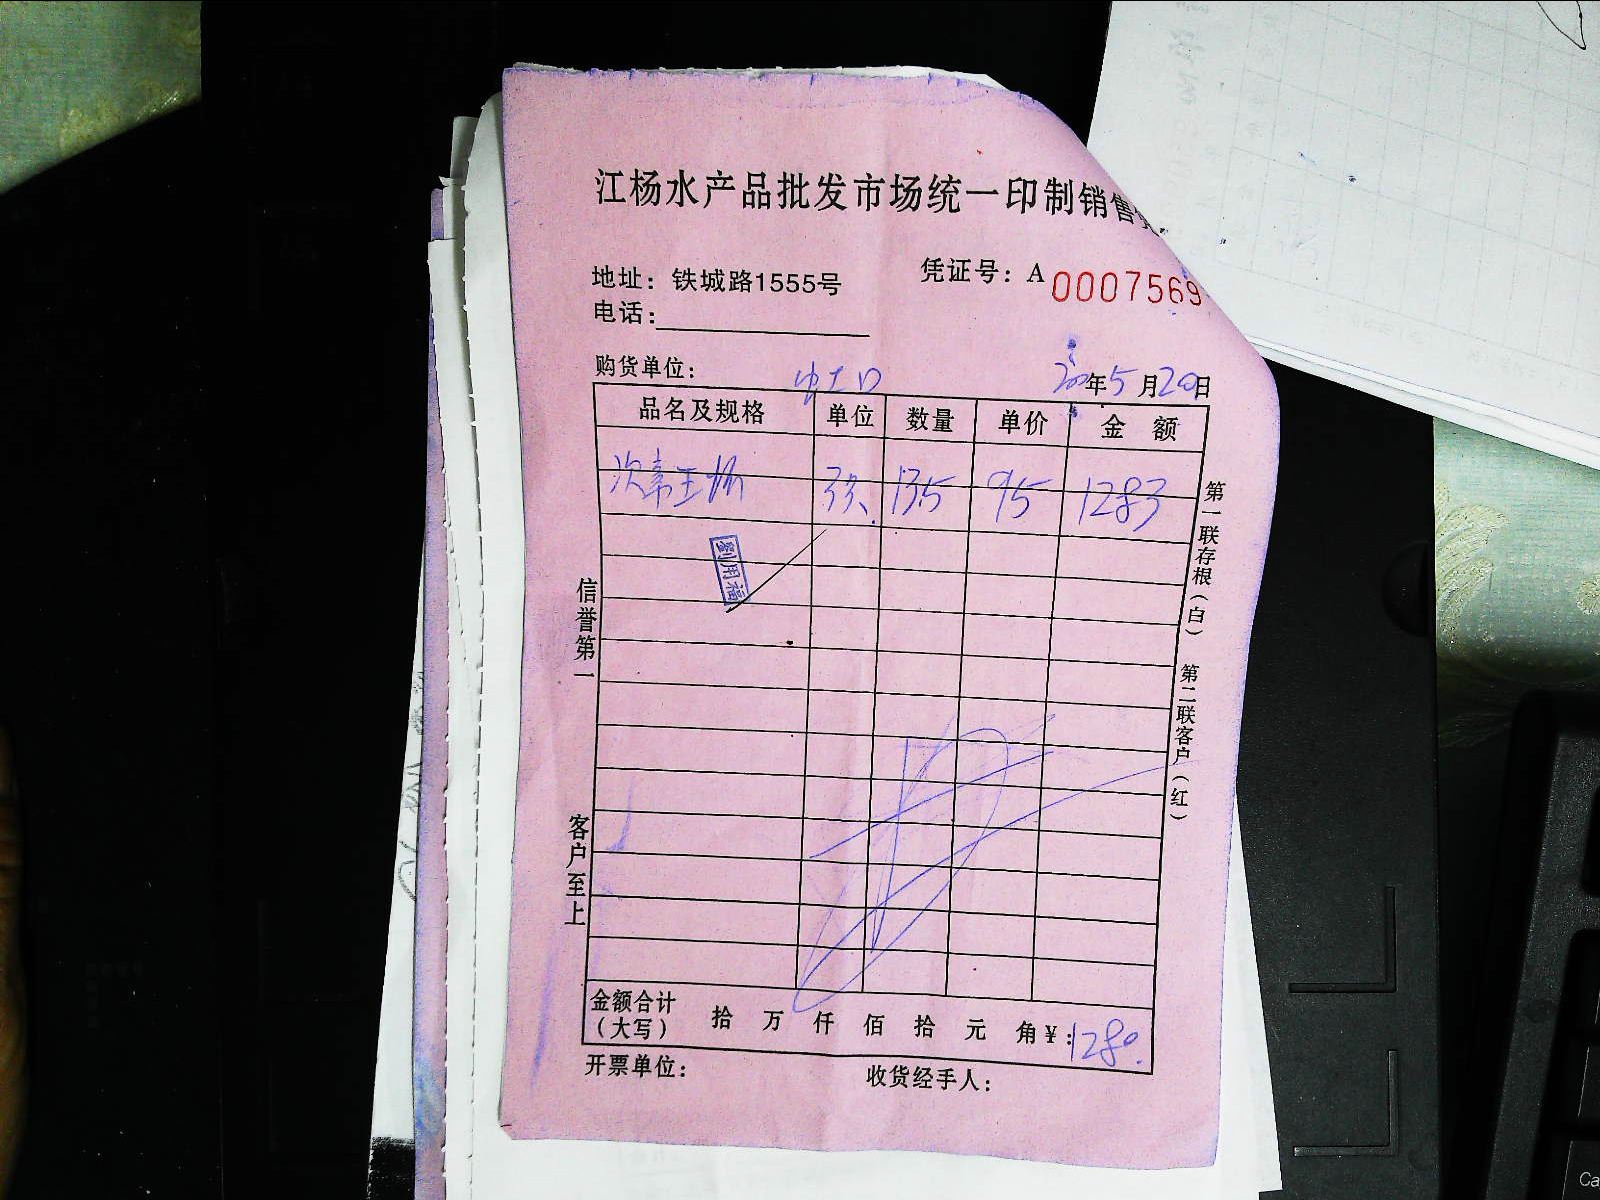 江杨水产品批发市场统一印制销售
地址：铁城路1555号
凭证号：A 0007569
电话：
购货单位：
年5月20日
品名及规格 单位 数量 单价 金额
13.5 95 1283
劉用福
信誉第一
客户至上
第一联存根（白） 第二联客户（红）
金额合计（大写） 拾 万 仟 佰 拾 元 角 ¥：1280.
开票单位：
收货经手人：